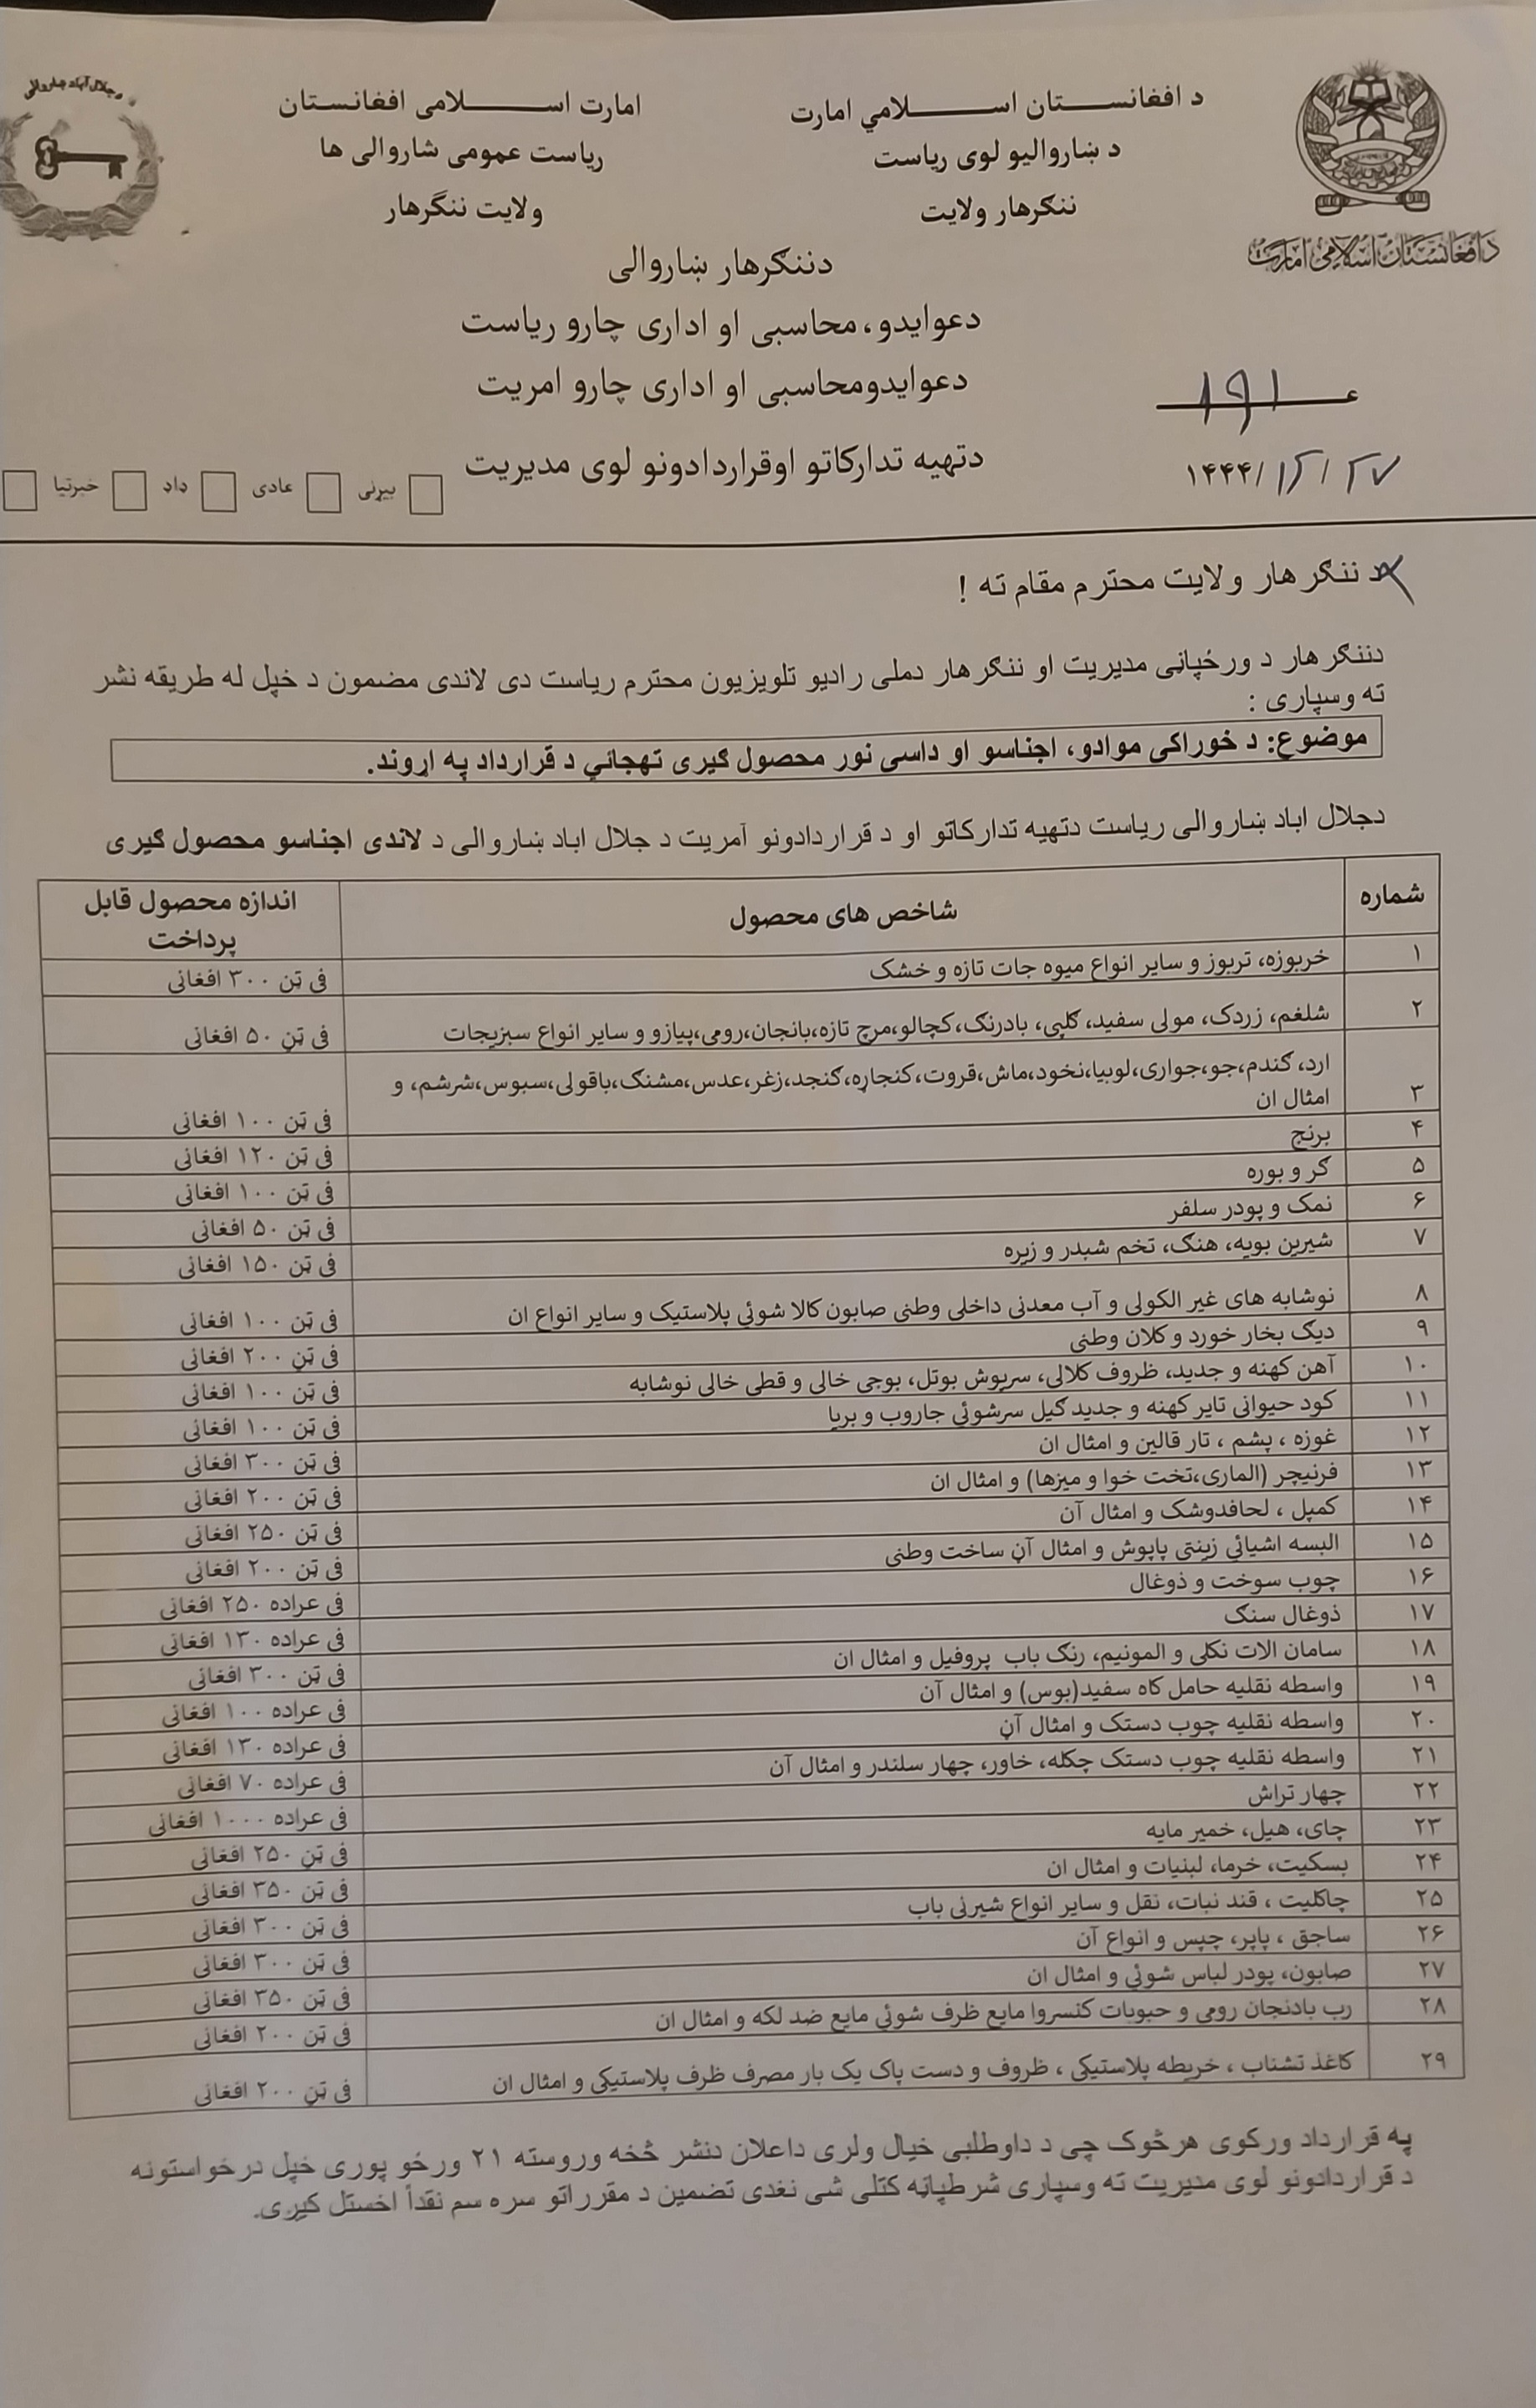 د جلال آباد ښاروالی
امارت اســـــــــلامی افغانستان
ریاست عمومی شاروالی ها
ولایت ننگرهار
د افغانســـــتان اســـــــــلامي امارت
د ښاروالیو لوی ریاست
ننګرهار ولایت
د افغانستان اسلامی امارت
دننګرهار ښاروالی
دعوایدو، محاسبی او اداری چارو ریاست
دعوایدومحاسبی او اداری چارو امریت
دتهیه تدارکاتو اوقراردادونو لوی مدیریت
۱۹۱
۱۴۴۴/۱۲/۲۷
بیړنی عادی ډاډ خبرتیا
د ننګرهار ولایت محترم مقام ته !
دننګرهار د ورځپاڼی مدیریت او ننګرهار دملی رادیو تلویزیون محترم ریاست دی لاندی مضمون د خپل له طریقه نشر
ته وسپاری :
موضوع: د خوراکی موادو، اجناسو او داسی نور محصول ګیری تهجائي د قرارداد په اړوند.
دجلال اباد ښاروالی ریاست دتهیه تدارکاتو او د قراردادونو آمریت د جلال اباد ښاروالی د لاندی اجناسو محصول ګیری
شماره شاخص های محصول اندازه محصول قابل پرداخت
۱ خربوزه، تربوز و سایر انواع میوه جات تازه و خشک فی ټن ۳۰۰ افغانی
۲ شلغم، زردک، مولی سفید، ګلپی، بادرنګ،کچالو،مرچ تازه،بانجان،رومی،پیازو و سایر انواع سبزیجات فی ټن ۵۰ افغانی
۳ ارد، ګندم،جو،جواری،لوبیا،نخود،ماش،قروت،کنجاره،ګنجد،زغر،عدس،مشنګ،باقولی،سبوس،شرشم، و
امثال ان فی ټن ۱۰۰ افغانی
۴ برنج فی ټن ۱۲۰ افغانی
۵ ګر و بوره فی ټن ۱۰۰ افغانی
۶ نمک و پودر سلفر فی ټن ۵۰ افغانی
۷ شیرین بویه، هنګ، تخم شبدر و زیره فی ټن ۱۵۰ افغانی
۸ نوشابه های غیر الکولی و آب معدنی داخلی وطنی صابون کالا شوئي پلاستیک و سایر انواع ان فی ټن ۱۰۰ افغانی
۹ دیګ بخار خورد و کلان وطنی فی ټن ۲۰۰ افغانی
۱۰ آهن کهنه و جدید، ظروف کلالی، سرپوش بوتل، بوجی خالی و قطی خالی نوشابه فی ټن ۱۰۰ افغانی
۱۱ کود حیوانی تایر کهنه و جدید ګیل سرشوئي جاروب و بریا فی ټن ۱۰۰ افغانی
۱۲ غوزه ، پشم ، تار قالین و امثال ان فی ټن ۳۰۰ افغانی
۱۳ فرنیچر (الماری،تخت خوا و میزها) و امثال ان فی ټن ۲۰۰ افغانی
۱۴ کمپل ، لحافدوشک و امثال آن فی ټن ۲۵۰ افغانی
۱۵ البسه اشیائي زینتی پاپوش و امثال آن ساخت وطنی فی ټن ۲۰۰ افغانی
۱۶ چوب سوخت و ذوغال فی عراده ۲۵۰ افغانی
۱۷ ذوغال سنګ فی عراده ۱۳۰ افغانی
۱۸ سامان الات نکلی و المونیم، رنګ باب پروفیل و امثال ان فی ټن ۳۰۰ افغانی
۱۹ واسطه نقلیه حامل کاه سفید(بوس) و امثال آن فی عراده ۱۰۰ افغانی
۲۰ واسطه نقلیه چوب دستک و امثال آن فی عراده ۱۳۰ افغانی
۲۱ واسطه نقلیه چوب دستک چکله، خاور، چهار سلندر و امثال آن فی عراده ۷۰ افغانی
۲۲ چهار تراش فی عراده ۱۰۰۰ افغانی
۲۳ چای، هیل، خمیر مایه فی ټن ۲۵۰ افغانی
۲۴ بسکیت، خرما، لبنیات و امثال ان فی ټن ۳۵۰ افغانی
۲۵ چاکلیت ، قند نبات، نقل و سایر انواع شیرنی باب فی ټن ۳۰۰ افغانی
۲۶ ساجق ، پاپر، چپس و انواع آن فی ټن ۳۰۰ افغانی
۲۷ صابون، پودر لباس شوئي و امثال ان فی ټن ۳۵۰ افغانی
۲۸ رب بادنجان رومی و حبوبات کنسروا مایع ظرف شوئي مایع ضد لکه و امثال ان فی ټن ۲۰۰ افغانی
۲۹ کاغذ تشناب ، خریطه پلاستیکی ، ظروف و دست پاک یک بار مصرف ظرف پلاستیکی و امثال ان فی ټن ۲۰۰ افغانی
په قرارداد ورکوی هرڅوک چی د داوطلبی خیال ولری داعلان دنشر څخه وروسته ۲۱ ورځو پوری خپل درخواستونه
د قراردادونو لوی مدیریت ته وسپاری شرطپاڼه کتلی شی نغدی تضمین د مقرراتو سره سم نقداً اخستل کیږی.